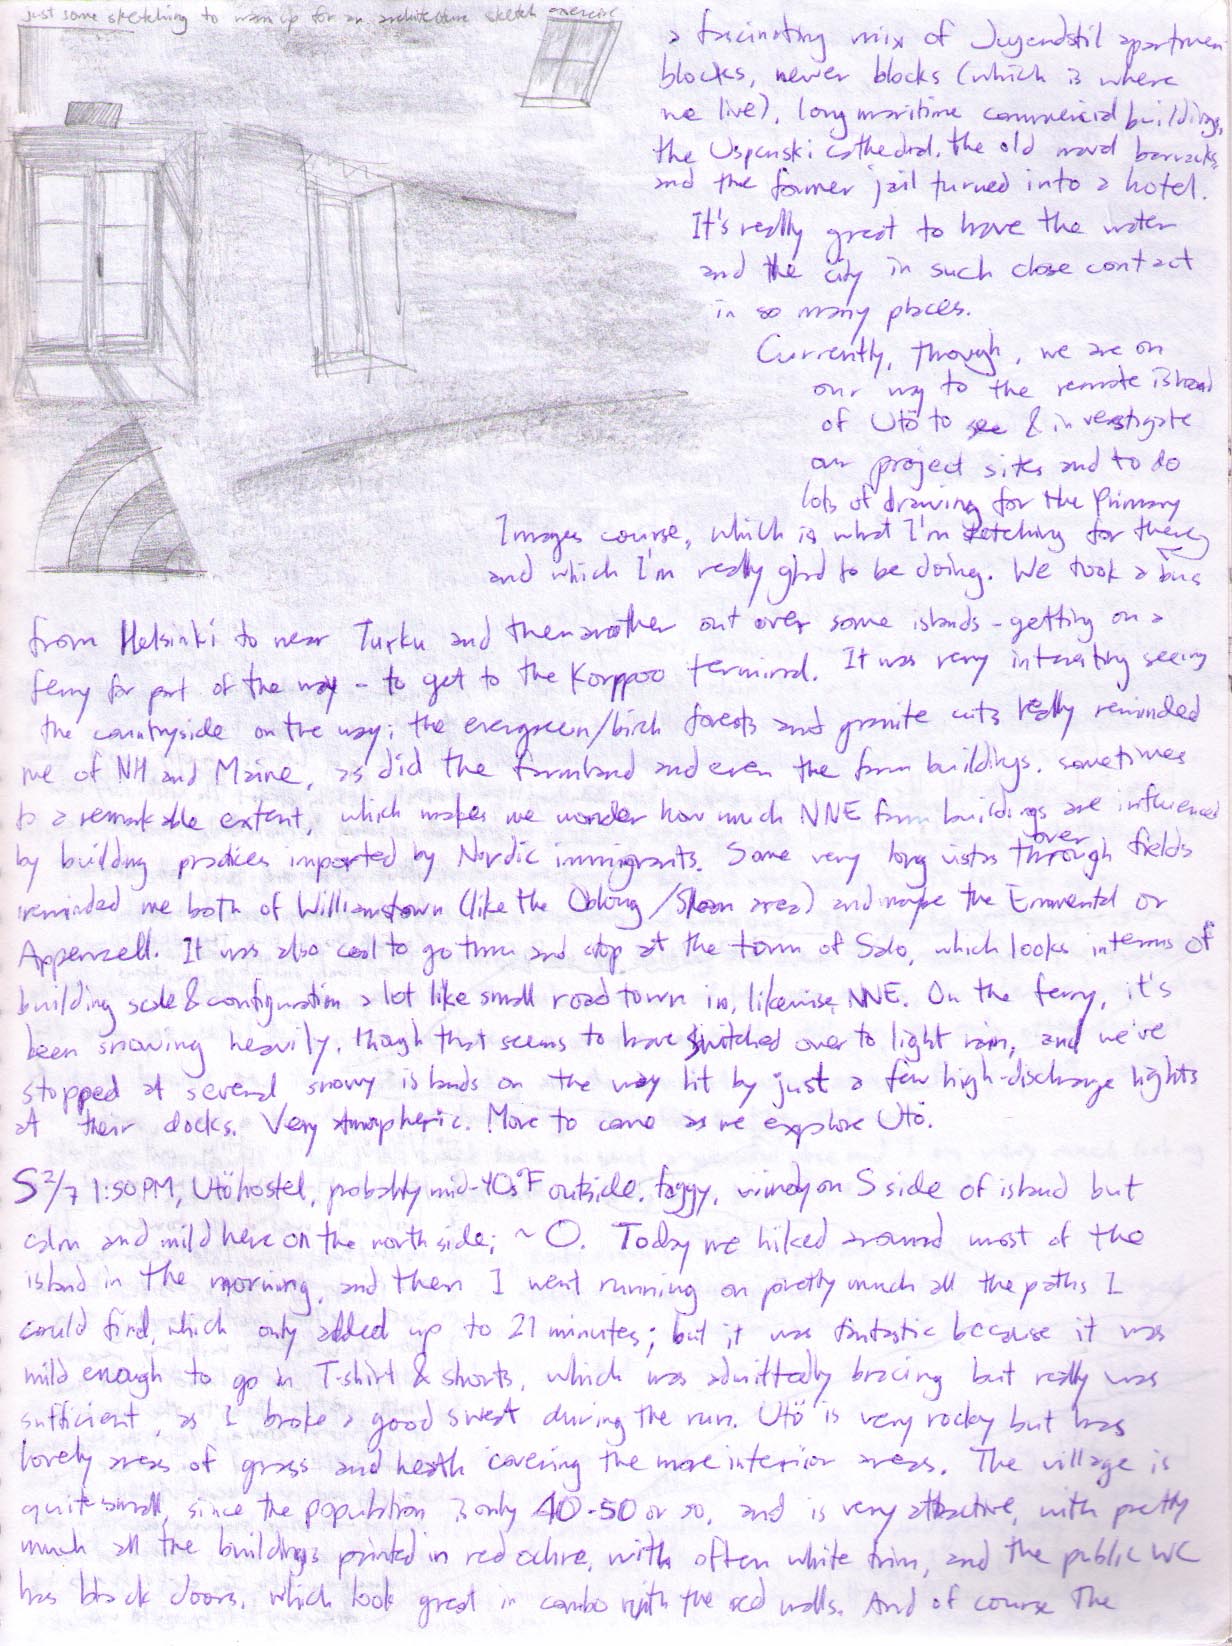 just some sketching to warm up for an architecture sketch exercise
a fascinating mix of Jugendstil apartmen
blocks, newer blocks (which is where
we live), long maritime commercial buildings,
the Uspenski cathedral, the old naval barracks,
and the former jail turned into a hotel.
It's really great to have the water
and the city in such close contact
in so many places.
Currently, though, we are on
our way to the remote island
of Utö to see & investigate
our project sites and to do
lots of drawing for the Primary
Images course, which is what I'm sketching for there,
and which I'm really glad to be doing. We took a bus
from Helsinki to near Turku and then another out over some islands - getting on a
ferry for part of the way - to get to the Korppoo terminal. It was very interesting seeing
the countryside on the way; the evergreen/birch forests and granite cuts really reminded
me of NH and Maine, as did the farmland and even the farm buildings, sometimes
to a remarkable extent, which makes me wonder how much NNE farm buildings are influenced
by building practices imported by Nordic immigrants. Some very long vistas through over fields
reminded me both of Williamstown (like the Oblong/Sloan area) and maybe the Emmental or
Appenzell. It was also cool to go thru and stop at the town of Salo, which looks in terms of
building scale & configuration a lot like small road town in, likewise, NNE. On the ferry, it's
been snowing heavily, though that seems to have switched over to light rain, and we've
stopped at several snowy islands on the way lit by just a few high-discharge lights
at their docks. Very atmospheric. More to come as we explore Utö.
S 2/7 1:50 PM, Utö hostel, probably mid-40s °F outside, foggy, windy on S side of island but
calm and mild here on the north side; ~0. Today we hiked around most of the
island in the morning, and then I went running on pretty much all the paths I
could find, which only added up to 21 minutes; but it was fantastic because it was
mild enough to go in T-shirt & shorts, which was admittedly bracing but really was
sufficient, as I broke a good sweat during the run. Utö is very rocky but has
lovely areas of grass and heath covering the more interior areas. The village is
quite small, since the population is only 40-50 or so, and is very attractive, with pretty
much all the buildings painted in red ochre, with often white trim, and the public WC
has black doors, which look great in combo with the red walls. And of course the